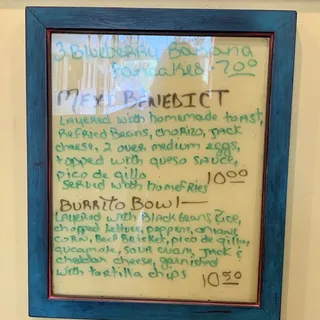 3 Blueberry Banana
Pancakes 7.00
MEXI BENEDICT
Layered with homemade toast,
Refried Beans, chorizo, Jack
cheese, 2 over medium eggs,
topped with queso sauce,
pico de gillo 10.00
Served with homefries
BURRITO BOWL—
Layered with Black beans, rice,
chopped lettuce, peppers, onions,
corn, Beef Brisket, pico de gillo,
guacamole, sour cream, Jack &
cheddar cheese, garnished
with tortilla chips 10.50